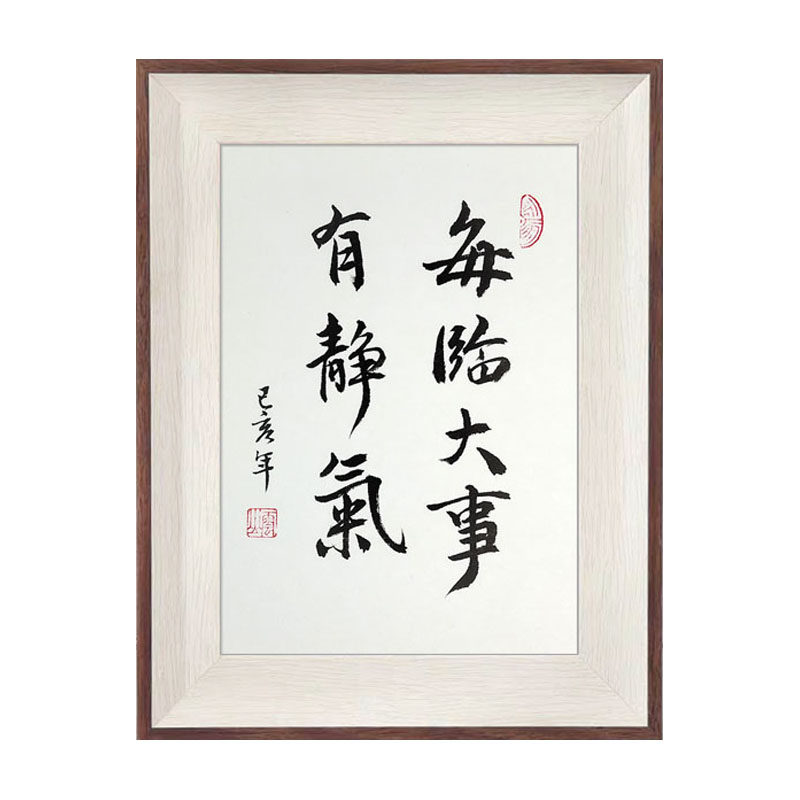 每臨大事
有静氣
己亥年